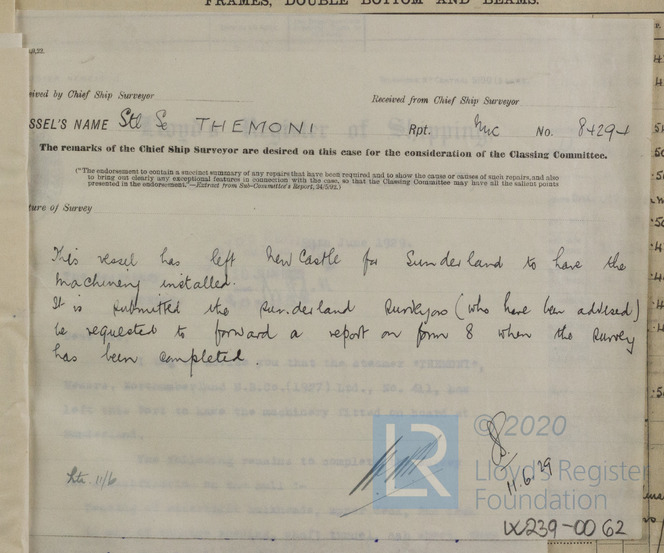 FRAMES, DOUBLE BOTTOM AND BEAMS.
ived by Chief Ship Surveyor
Received from Chief Ship Surveyor
SSEL'S NAME Stl Sc THEMONI Rpt. Nwc No. 84294
The remarks of the Chief Ship Surveyor are desired on this case for the consideration of the Classing Committee.
("The endorsement to contain a succinct summary of any repairs that have been required and to show the cause or causes of such repairs, and also
to bring out clearly any exceptional features in connection with the case, so that the Classing Committee may have all the salient points
presented in the endorsement."—Extract from Sub-Committee's Report, 24/5/92.)
ture of Survey
This vessel has left Newcastle for Sunderland to have the
machinery installed.
It is submitted the Sunderland Surveyors (who have been advised)
be requested to forward a report on form 8 when the survey
has been completed.
Ltr. 11/6
11.6.29
© 2020
LR
Lloyd's Register
Foundation
W239-0062